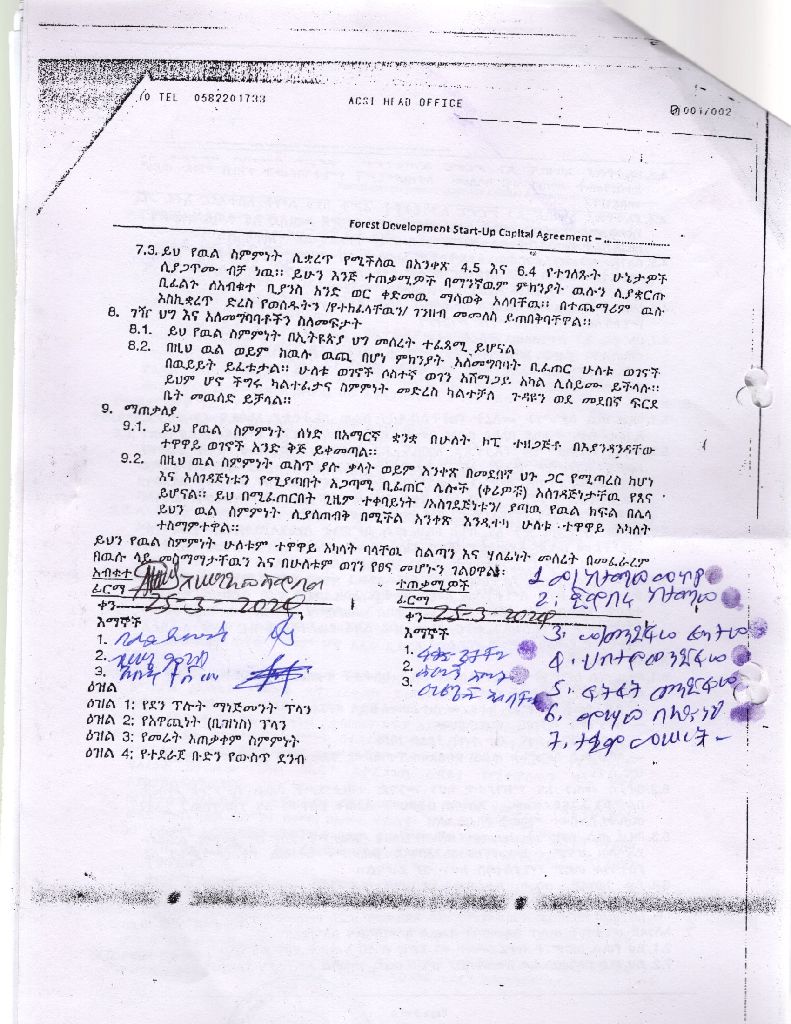 /0 TEL 0582201733 ACSI HEAD OFFICE 001/002
Forest Development Start-Up Capital Agreement – ......................
7.3. ይህ የዉል ስምምነት ሊቋረጥ የሚችለዉ በአንቀጽ 4.5 እና 6.4 የተገለጹት ሁኔታዎች
ሲያጋጥሙ ብቻ ነዉ። ይሁን እንጅ ተጠቃሚዎች በማንኛዉም ምክንያት ዉሉን ሊያቋርጡ
ቢፈልጉ ለአብቁተ ቢያንስ አንድ ወር ቀድመዉ ማሳወቅ አለባቸዉ። በተጨማሪም ዉሉ
እስኪቋረጥ ድረስ የወሰዱትን /የተከፈላቸዉን/ ገንዘብ መመለስ ይጠበቅባቸዋል።
8. ገዥ ህግ እና አለመግባባቶችን ስለመፍታት
8.1. ይህ የዉል ስምምነት በኢትዩጵያ ህግ መሰረት ተፈጻሚ ይሆናል
8.2. በዚህ ዉል ወይም ከዉሉ ዉጪ በሆነ ምክንያት አለመግባባት ቢፈጠር ሁለቱ ወገኖች
በዉይይት ይፈቱታል። ሁለቱ ወገኖች ሶስተኛ ወገን አሸማጋይ አካል ሊሰይሙ ይችላሉ።
ይህም ሆኖ ችግሩ ካልተፈታና ስምምነት መድረስ ካልተቻለ ጉዳዩን ወደ መደበኛ ፍርድ
ቤት መዉሰድ ይቻላል።
9. ማጠቃለያ
9.1. ይህ የዉል ስምምነት ሰነድ በአማርኛ ቋንቋ በሁለት ኮፒ ተዘጋጅቶ በእያንዳንዳቸው
ተዋዋይ ወገኖች አንድ ቅጅ ይቀመጣል።
9.2. በዚህ ዉል ስምምነት ዉስጥ ያሉ ቃላት ወይም አንቀጽ በመደበኛ ህጉ ጋር የሚጣረስ ከሆነ
እና አስገዳጅነቱን የሚያጣበት አጋጣሚ ቢፈጠር ሌሎች (ቀሪዎቹ) አስገዳጅነታቸዉ የጸና
ይሆናል። ይህ በሚፈጠርበት ጊዜም ተቀባይነት /አስገደጅነቱን/ ያጣዉ የዉል ክፍል በሌላ
ይህን ዉል ስምምነት ሊያስጠብቅ በሚችል አንቀጽ እንዲተካ ሁለቱ ተዋዋይ አካላት
ተስማምተዋል።
ይህን የዉል ስምምነት ሁለቱም ተዋዋይ አካላት ባላቸዉ ስልጣን እና ሃላፊነት መሰረት በመፈራረም
በዉሉ ላይ መስማማታቸዉን እና በሁለቱም ወገን የፀና መሆኑን ገልፀዋል።
አብቁተ
ፊርማ
ቀን 25-3-2020
እማኞች
1.
2.
3.
ተጠቃሚዎች
ፊርማ
ቀን 25-3-2020
እማኞች
1.
2.
3.
ዕዝል
ዕዝል 1: የደን ፕሎት ማነጅመንት ፕላን
ዕዝል 2: የአዋጪነት (ቢዝነስ) ፕላን
ዕዝል 3: የመሬት አጠቃቀም ስምምነት
ዕዝል 4: የተደራጀ ቡድን የውስጥ ደንብ